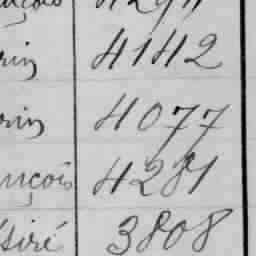 nçois
rin 4142
rin 4077
nçois 4281
siré 3808